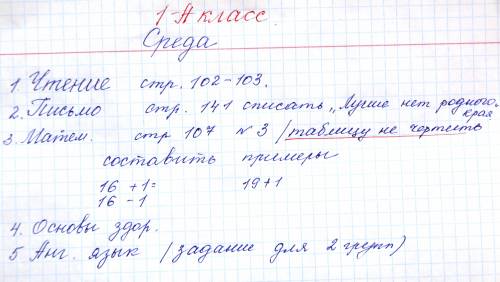 1-А класс
Среда
1. Чтение стр. 102-103.
2. Письмо стр. 141 списать „Лучше нет родного края
3. Матем. стр 107 №3 /таблицу не чертить
составить примеры
16 +1= 19+1
16 -1
4. Основы здор.
5 Анг. язык /задание для 2 групп)